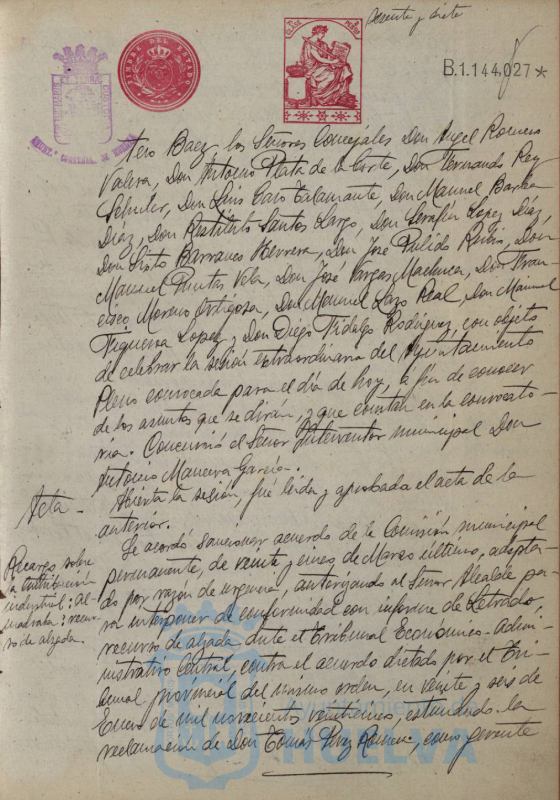 sesenta y siete
B.1.144.027*
TIMBRE DEL ESTADO
tero Baez, los Señores Concejales Don Angel Romero
Valera, Don Antonio Plata de la Corte, Don Fernando Rey
Don Luis Caro Don Manuel Barba
Díaz, Don Restituto Santos Largo, Don Serafín Lopez Díaz,
Don Sixto Barranco Herrera, Don José Pulido Rubio, Don
Manuel Puntas Vela, Don José Vargas Machuca, Don Fran-
cisco Moreno Ortigosa, Don Manuel Lazo Real, Don Manuel
Figueroa Lopez y Don Diego Fidalgo Rodríguez, con objeto
de celebrar la sesión extraordinaria del Ayuntamiento
Pleno convocada para el día de hoy, a fin de conocer
de los asuntos que se dirán, y que constan en la convocato-
ria. Concurrió el Señor Interventor municipal Don
Antonio Garcia.
Acta - Abierta la sesión, fué leida y aprobada el acta de la
anterior.
Recargo sobre
la contribución
industrial: Al-
madraba: recur-
so de alzada.
Se acordó sancionar acuerdo de la Comisión municipal
permanente, de veinte y cinco de Marzo último, adopta-
do por razon de urgencia, autorizando al Señor Alcalde pa-
ra interponer de conformidad con informe de Letrado,
recurso de alzada ante el Tribunal Económico-Admi-
nistrativo Central, contra el acuerdo dictado por el Tri-
bunal provincial del mismo orden, en veinte y seis de
Enero de mil novecientos veinticinco, estimando la
reclamación de Don Tomás Perez Romero, como gerente
Ayuntamiento de
HUELVA